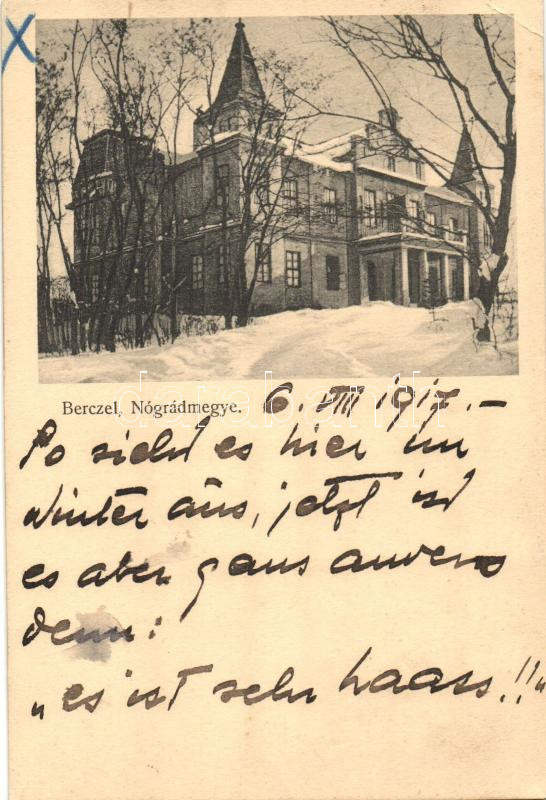 Berczel, Nógrádmegye. 6. VIII 1917.–
So sieht es hier im
Winter aus, jetzt ist
es aber gans anders
denn:
„es ist sehr haass!!"
darabanth